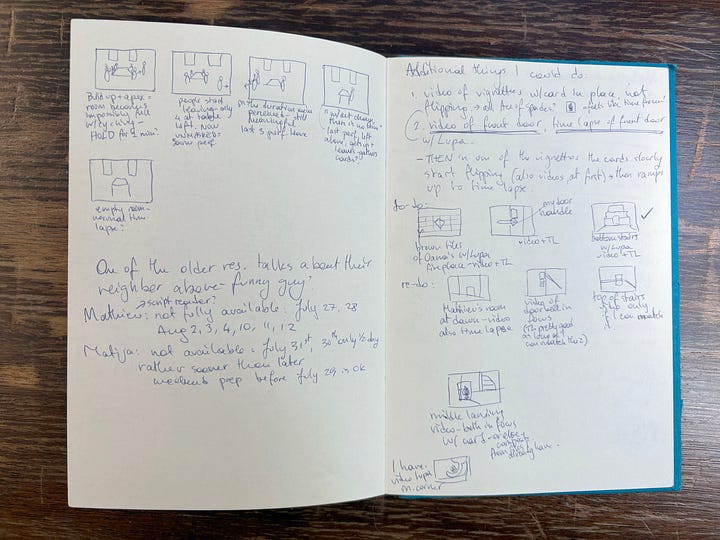 Build up + apex =
room becomes
impossibly full
HOLD for 2 min?
people start
leaving - only
4 at table
left. Now
UNMASKED =
some perf.
last 3 perf. leave
then is no then
last perf. left
alone, gets up +
leaves - gathers
cards?
empty room -
normal then
lapse?
One of the older res. talks about their
neighbor above - funny guy?
→ script reader?
Mathieu: not fully available: July 27, 28
Aug 2, 3, 4, 10, 11, 12
Matija: not available: July 31st, 30th only ½ day
rather sooner than later
weekends prep before July 29 is ok
Additional things I could do:
1. video of vignettes w/card in place, not
flipping → all Ace of Spades?
2. video of front door, time lapse of front door
w/Lupa.
- THEN in one of the vignettes the cards slowly
start flipping (also videos, at first) + then ramps
up to time lapse.
to-do:
my door
handle
brown tiles
w/Lupa
fireplace - video + TL
video + TL
bottom stairs
w/Lupa
video + TL
re-do:
Mathieu's room
at dawn - video
also time lapse
video of
focus
top of stairs
only
if I can match
it
middle landing
video - both in focus
w/ card - or else
I have
video Lupa
in corner